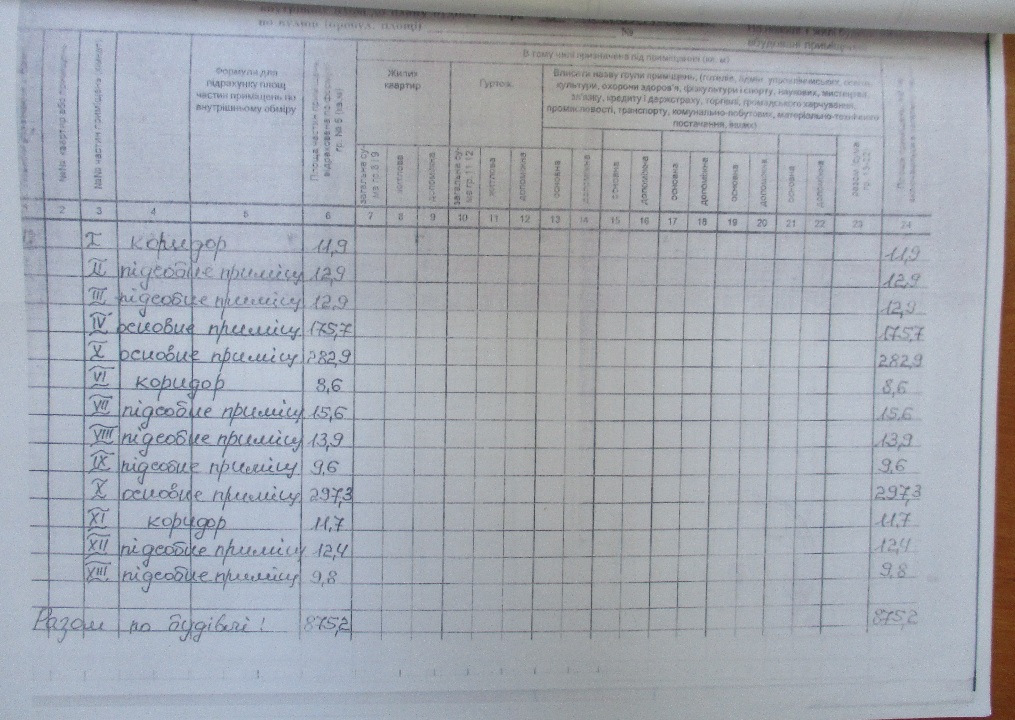 по вулиці (провул. площі) №
В тому числі призначена під приміщення (кв. м)
№№ квартир або приміщень
№№ частин приміщень (кімнат)
Формули для підрахунку площ частин приміщень по внутрішньому обміру
Площа частин приміщень
гр. № 5 (кв.м)
Житлих квартир
Гуртож.
Вписати назву групи приміщень, (готелів, адмін. управлінських, освіти,
культури, охорони здоров'я, фізкультури і спорту, наукових, мистецтва,
зв'язку, кредиту і держстраху, торгівлі, громадського харчування,
промисловості, транспорту, комунально-побутових, матеріально-технічного
постачання, інших)
житлова допоміжна житлова допоміжна основна допоміжна основна допоміжна основна допоміжна основна допоміжна основна допоміжна
2 3 4 5 6 7 8 9 10 11 12 13 14 15 16 17 18 19 20 21 22 23 24
I коридор 11,9 11,9
II підсобне приміщ 12,9 12,9
III підсобне приміщ 12,9 12,9
IV основне приміщ 175,7 175,7
V основне приміщ 282,9 282,9
VI коридор 8,6 8,6
VII підсобне приміщ 15,6 15,6
VIII підсобне приміщ 13,9 13,9
IX підсобне приміщ 9,6 9,6
X основне приміщ 297,3 297,3
XI коридор 11,7 11,7
XII підсобне приміщ 12,4 12,4
XIII підсобне приміщ 9,8 9,8
Разом по будівлі! 875,2 875,2